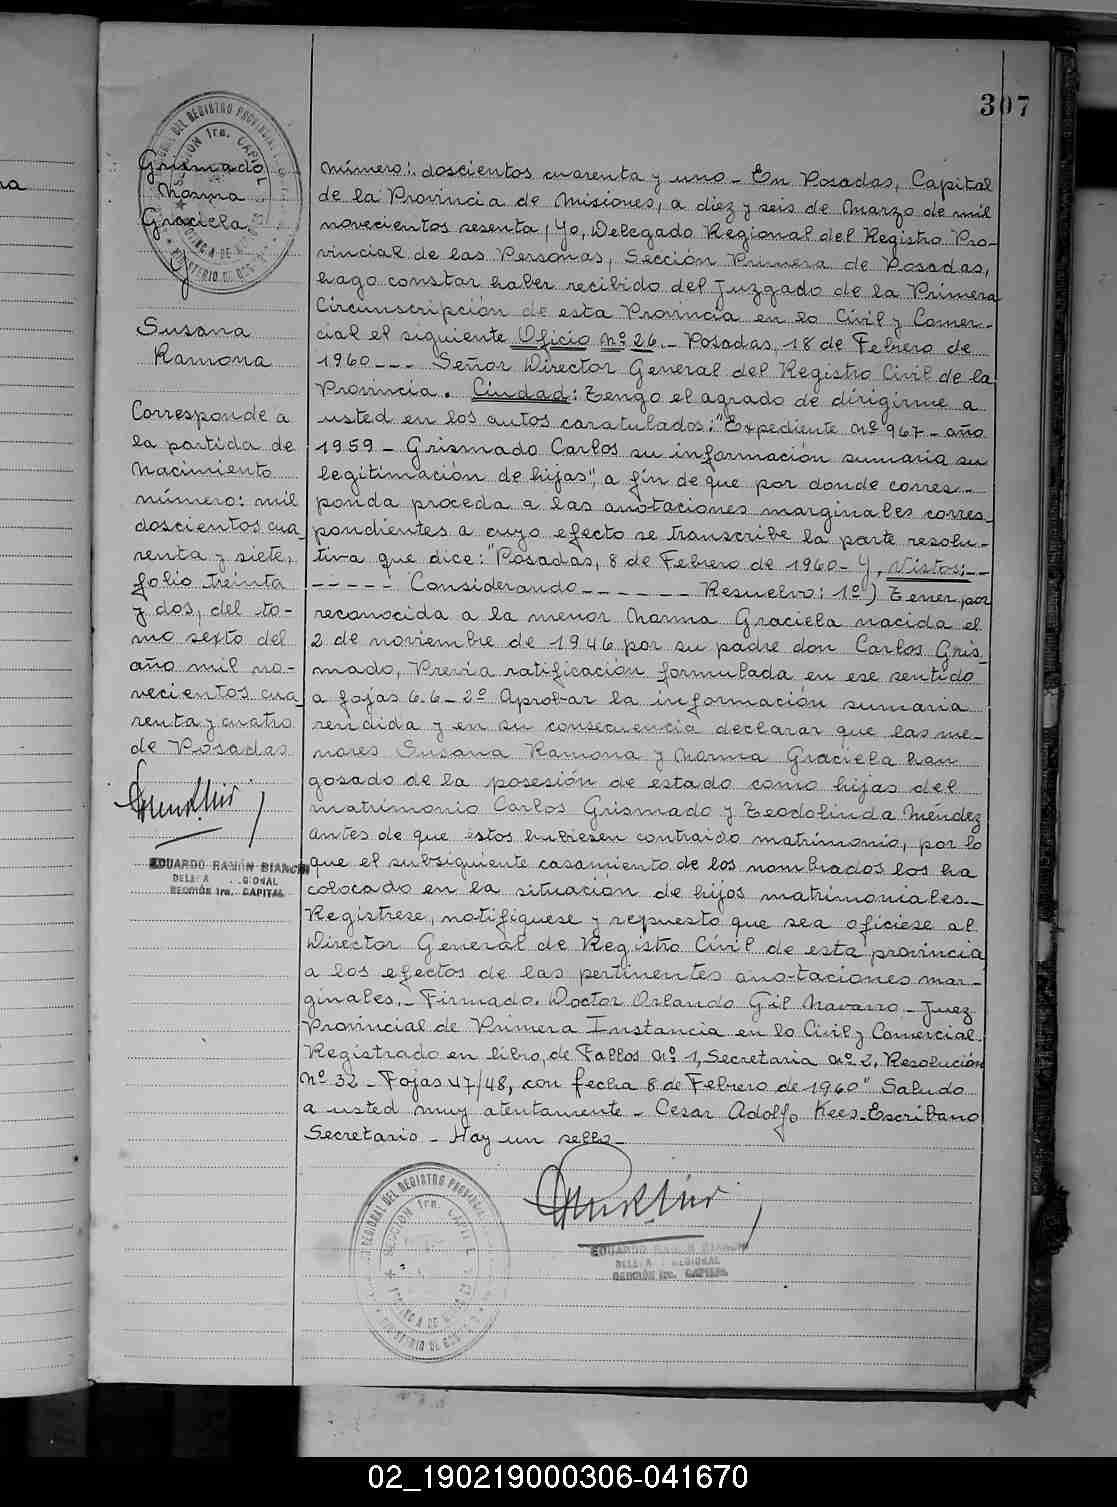 307
Grismado
Norma
Graciela
y
Susana
Ramona
Corresponde a
la partida de
Nacimiento
número: mil
doscientos cua-
renta y siete,
folio treinta
y dos, del to-
mo sexto del
año mil no-
vecientos cua-
renta y cuatro
de Posadas
EDUARDO RAMÓN BIANCHI
SECCIÓN 1ra. CAPITAL
Número: doscientos cuarenta y uno - En Posadas, Capital
de la Provincia de Misiones, a diez y seis de Marzo de mil
novecientos sesenta, Yo, Delegado Regional del Registro Pro-
vincial de las Personas, Sección Primera de Posadas,
hago constar haber recibido del Juzgado de la Primera
Circunscripción de esta Provincia en lo Civil y Comer-
cial el siguiente Oficio Nº 26.- Posadas, 18 de Febrero de
1960 --- Señor Director General del Registro Civil de la
Provincia. Ciudad: Tengo el agrado de dirigirme a
usted en los autos caratulados: "Expediente Nº 967 - año
1959 - Grismado Carlos su información sumaria su
legitimación de hijas", a fin de que por donde corres-
ponda proceda a las anotaciones marginales corres-
pondientes a cuyo efecto se transcribe la parte resolu-
tiva que dice: "Posadas, 8 de Febrero de 1960 - Y, Vistos: --
------ Considerando ------ Resuelvo: 1º) Tener por
reconocida a la menor Norma Graciela nacida el
2 de noviembre de 1946 por su padre don Carlos Gris-
mado, Previa ratificación formulada en ese sentido
a fojas 6.6 - 2º Aprobar la información sumaria
rendida y en su consecuencia declarar que las me-
nores Susana Ramona y Norma Graciela han
gosado de la posesión de estado como hijas del
matrimonio Carlos Grismado y Teodolinda Méndez
antes de que éstos hubiesen contraido matrimonio, por lo
que el subsiguiente casamiento de los nombrados los ha
colocado en la situación de hijos matrimoniales.-
Regístrese, notifíquese y repuesto que sea ofíciese al
Director General de Registro Civil de esta provincia
a los efectos de las pertinentes anotaciones mar-
ginales. - Firmado. Doctor Orlando Gil Navarro - Juez
Provincial de Primera Instancia en lo Civil y Comercial.
Registrado en libro, de Fallos Nº 1, Secretaria Nº 2, Resolución
Nº 32 - Fojas 47/48, con fecha 8 de Febrero de 1960" Saludo
a usted muy atentamente - Cesar Adolfo Kees - Escribano
Secretario - Hay un sello -
EDUARDO RAMÓN BIANCHI
SECCIÓN 1ra. CAPITAL
02_190219000306-041670